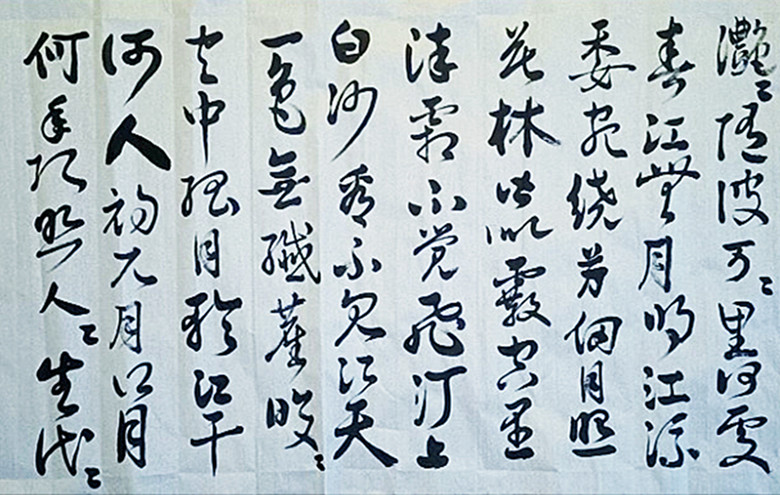 灩〻随波万〻里何處
春江無月明江流
委宛绕芳甸月照
花林皆似霰空里
流霜不觉飞汀上
白沙看不见江天
一色無纖塵皎〻
空中孤月輪江干
何人初见月江月
何年初照人〻生代〻